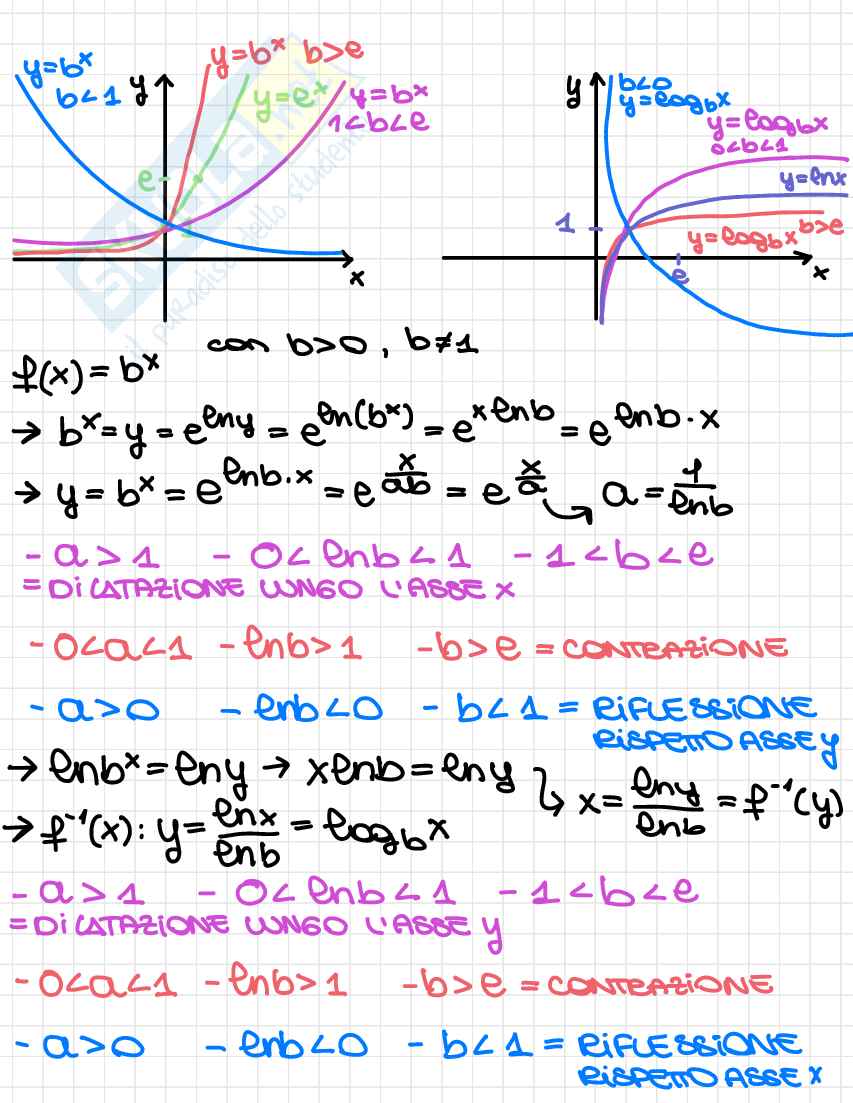 y=bˣ b>e
y=bˣ
b<1
y
y=eˣ
y=bˣ
1<b<e
e
x
y
b<0
y=log_b x
y=log_b x
0<b<1
y=lnx
1
y=log_b x b>e
e
x
il paradiso dello studente
f(x)=bˣ con b>0, b≠1
→ bˣ=y=e^(lny)=e^(ln(bˣ))=e^(xlnb)=e^(lnb·x)
→ y=bˣ=e^(lnb·x)=e^(x/ab)=e^(x/a) → a=1/lnb
-a>1 -0<lnb<1 -1<b<e
=DILATAZIONE LUNGO L'ASSE x
-0<a<1 -lnb>1 -b>e = CONTRAZIONE
-a>0 -lnb<0 -b<1 = RIFLESSIONE
RISPETTO ASSE y
→ lnbˣ=lny → xlnb=lny ↳ x=lny/lnb=f⁻¹(y)
→ f⁻¹(x): y=lnx/lnb=log_b x
-a>1 -0<lnb<1 -1<b<e
=DILATAZIONE LUNGO L'ASSE y
-0<a<1 -lnb>1 -b>e = CONTRAZIONE
-a>0 -lnb<0 -b<1 = RIFLESSIONE
RISPETTO ASSE x